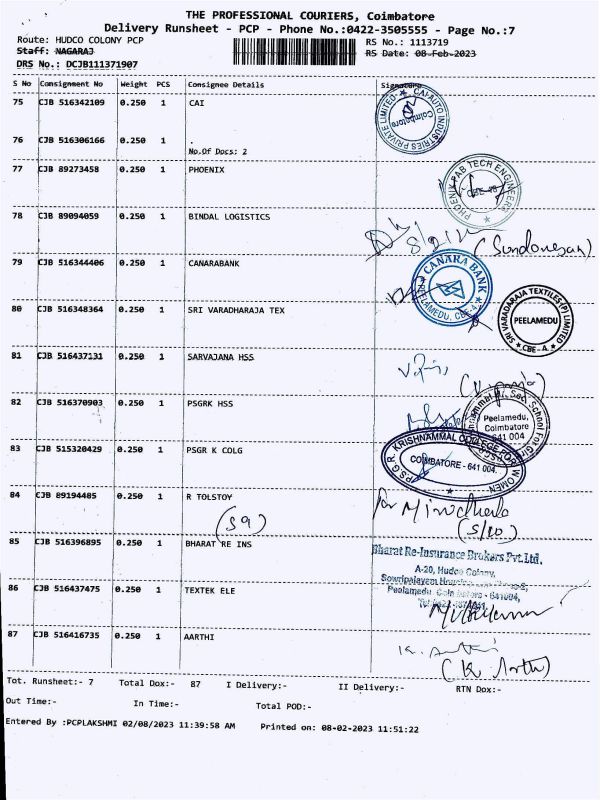 THE PROFESSIONAL COURIERS, Coimbatore
Delivery Runsheet - PCP - Phone No.:0422-3505555 - Page No.:7
Route: HUDCO COLONY PCP
RS No.: 1113719
Staff: NAGARAJ
RS Date: 08-Feb-2023
DRS No.: DCJB111371907
S No Consignment No Weight PCS Consignee Details Signature
75 CJB 516342109 0.250 1 CAI
CAI AUTO INDUSTRIES PRIVATE LIMITED
Coimbatore
76 CJB 516306166 0.250 1 .
No.Of Docs: 2
77 CJB 89273458 0.250 1 PHOENIX
PHOENIX FAB TECH ENGINEERS
78 CJB 89094059 0.250 1 BINDAL LOGISTICS
(Sundaresan)
79 CJB 516344406 0.250 1 CANARABANK
CANARA BANK
PEELAMEDU, CBE-4
80 CJB 516348364 0.250 1 SRI VARADHARAJA TEX
SRI VARADARAJA TEXTILES (P) LIMITED
PEELAMEDU
CBE - 4.
81 CJB 516437131 0.250 1 SARVAJANA HSS
82 CJB 516370903 0.250 1 PSGRK HSS
Peelamedu,
Coimbatore
641 004
83 CJB 515320429 0.250 1 PSGR K COLG
P.S.G.R. KRISHNAMMAL COLLEGE FOR WOMEN
COIMBATORE - 641 004.
84 CJB 89194485 0.250 1 R TOLSTOY
(59)
for
85 CJB 516396895 0.250 1 BHARAT RE INS
Bharat Re-Insurance Brokers Pvt.Ltd.
A-20, Hudco Colony,
Sowripalayam
Peelamedu, Coimbatore - 641004,
86 CJB 516437475 0.250 1 TEXTEK ELE
87 CJB 516416735 0.250 1 AARTHI
K. Aarthi
(K. Aarthi)
Tot. Runsheet:- 7 Total Dox:- 87 I Delivery:- II Delivery:- RTN Dox:-
Out Time:- In Time:- Total POD:-
Entered By :PCPLAKSHMI 02/08/2023 11:39:58 AM Printed on: 08-02-2023 11:51:22